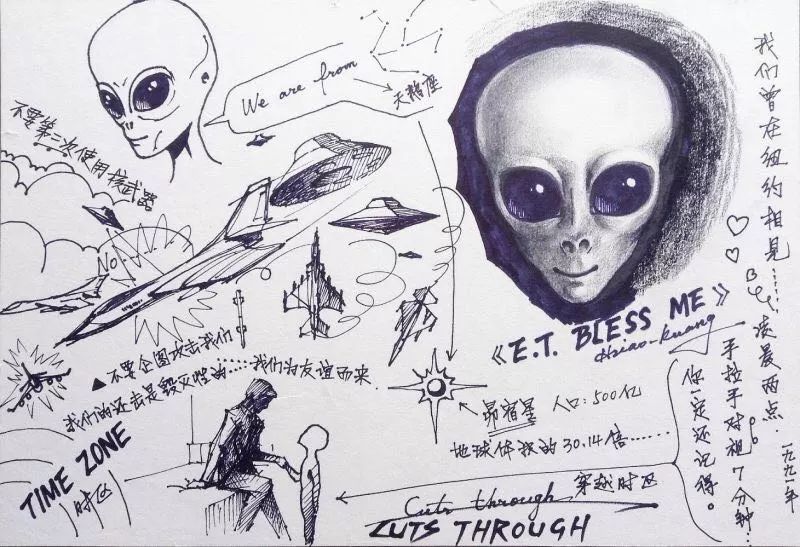 We are from
天楷座
不要第二次使用核武器
No!
《E.T. BLESS ME》
Hsiao-kuang
我们曾在纽约相见……
凌晨两点.
手拉手对视7分钟…
你一定还记得。
一九九一年
▲不要企图攻击我们!
我们的还击是毁灭性的……我们为友谊而来
昴宿星 人口:500亿
地球体积的30.14倍……
TIME ZONE
时区
穿越时区
Cuts through
CUTS THROUGH